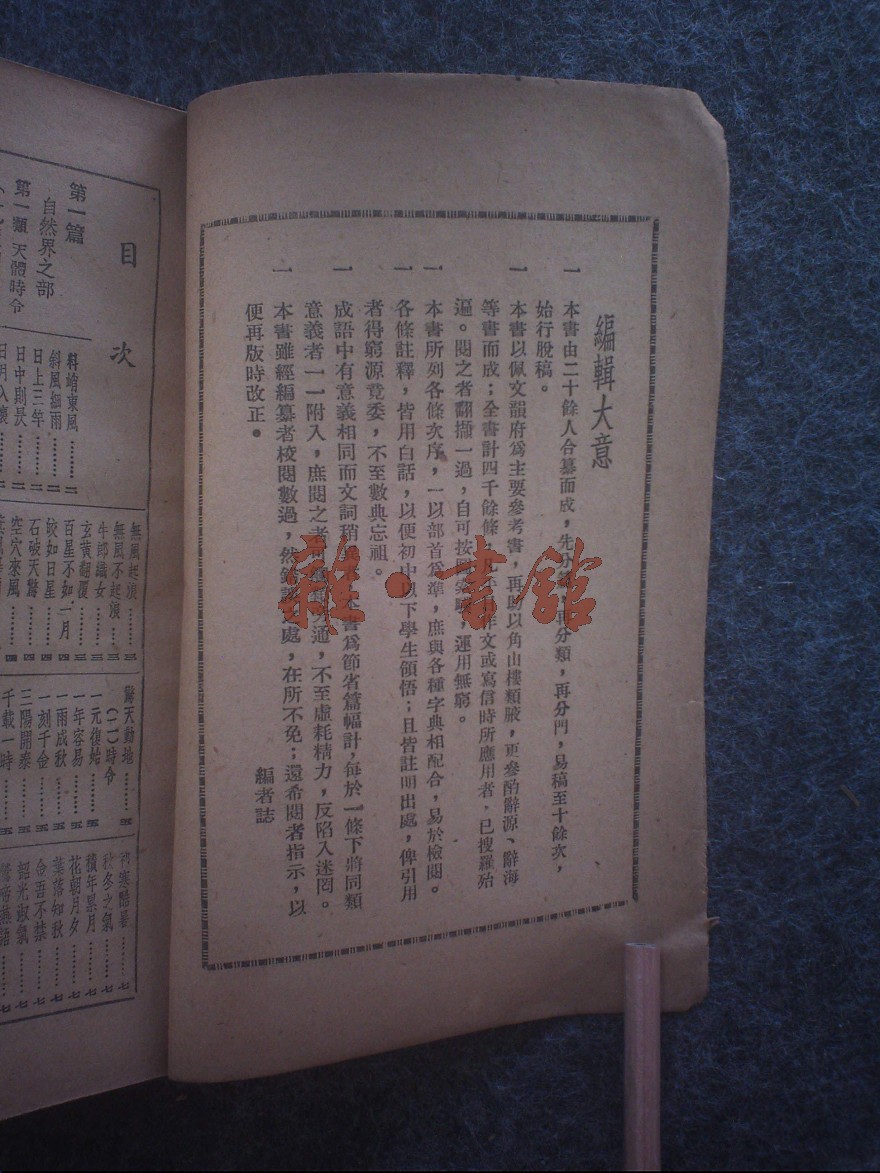 編輯大意
一 本書由二十餘人合纂而成，先分篇，再分類，再分門，易稿至十餘次，
始行脫稿。
一 本書以佩文韻府爲主要參考書，再助以角山樓類腋，更參酌辭源、辭海
等書而成；全書計四千餘條，凡 作文或寫信時所應用者，已搜羅殆
遍。閱之者翻擷一過，自可按 運用無窮。
一 本書所列各條次序，一以部首爲準，庶與各種字典相配合，易於檢閱。
一 各條註釋，皆用白話，以便初中以下學生領悟；且皆註明出處，俾引用
者得窮源竟委，不至數典忘祖。
一 成語中有意義相同而文詞稍 本書爲節省篇幅計，每於一條下將同類
意義者一一附入，庶閱之者可 通，不至虛耗精力，反陷入迷罔。
一 本書雖經編纂者校閱數過，然錯誤之處，在所不免；還希閱者指示，以
便再版時改正。
編者誌
雜·書館
目次
第一篇
自然界之部
第一類 天體時令
料峭東風………一
斜風細雨………一
日上三竿………一
日中則昃………一
無風起浪
無風不起浪
牛郎織女
玄黃翻覆
百星不如一月
皎如日星
石破天驚
空穴來風
驚天動地
(二)時令
一元復始
一年容易
一雨成秋
一刻千金
三陽開泰
千載一時
祁寒酷暑……七
秋冬之氣……七
積年累月……七
花朝月夕……七
葉落知秋……七
金吾不禁……七
韶光淑氣……七